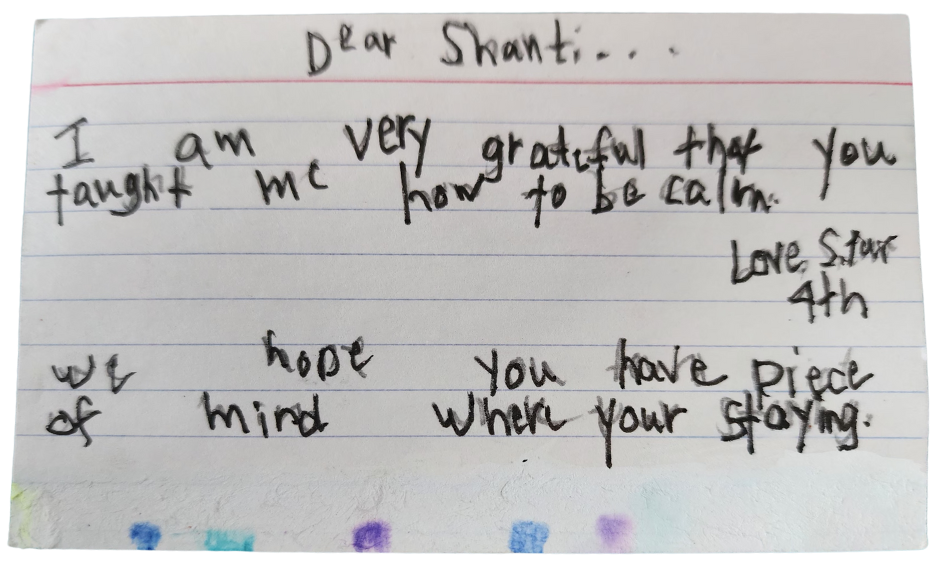 Dear Shanti...
I am very grateful that you
taught me how to be calm.
Love, Star
4th
we hope you have piece
of mind where your staying.